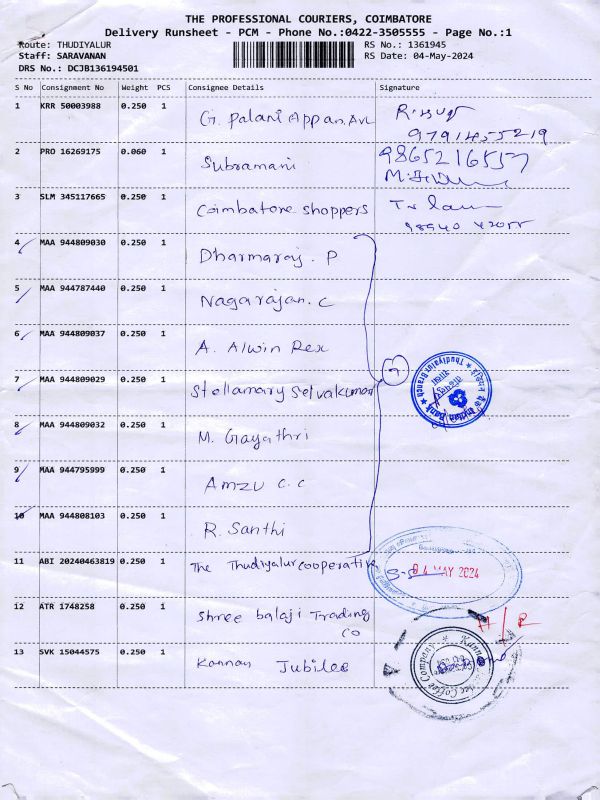 THE PROFESSIONAL COURIERS, COIMBATORE
Delivery Runsheet - PCM - Phone No.:0422-3505555 - Page No.:1
Route: THUDIYALUR
RS No.: 1361945
Staff: SARAVANAN
RS Date: 04-May-2024
DRS No.: DCJB136194501
S No Consignment No Weight PCS Consignee Details Signature
1 KRR 50003988 0.250 1 G. Palani Appan. AVL
9791455219
2 PRO 16269175 0.060 1 Subramani 9865216557
3 SLM 345117665 0.250 1 Coimbatore shoppers
98940 42055
4 MAA 944809030 0.250 1 Dharmaraj. P
5 MAA 944787440 0.250 1 Nagarajan. C
6 MAA 944809037 0.250 1 A. Alwin Rex
7 MAA 944809029 0.250 1 Stellamary Selvakumar
7
Indian Bank
Thudiyalur Branch
8 MAA 944809032 0.250 1 M. Gayathri
9 MAA 944795999 0.250 1 Amzu C.C
10 MAA 944808103 0.250 1 R. Santhi
11 ABI 20240463819 0.250 1 The Thudiyalur cooperative
04 MAY 2024
12 ATR 1748258 0.250 1 Shree balaji Trading
Co
H/R
13 SVK 15044575 0.250 1 Kannan Jubilee
Kannan Jubilee Coffee Company